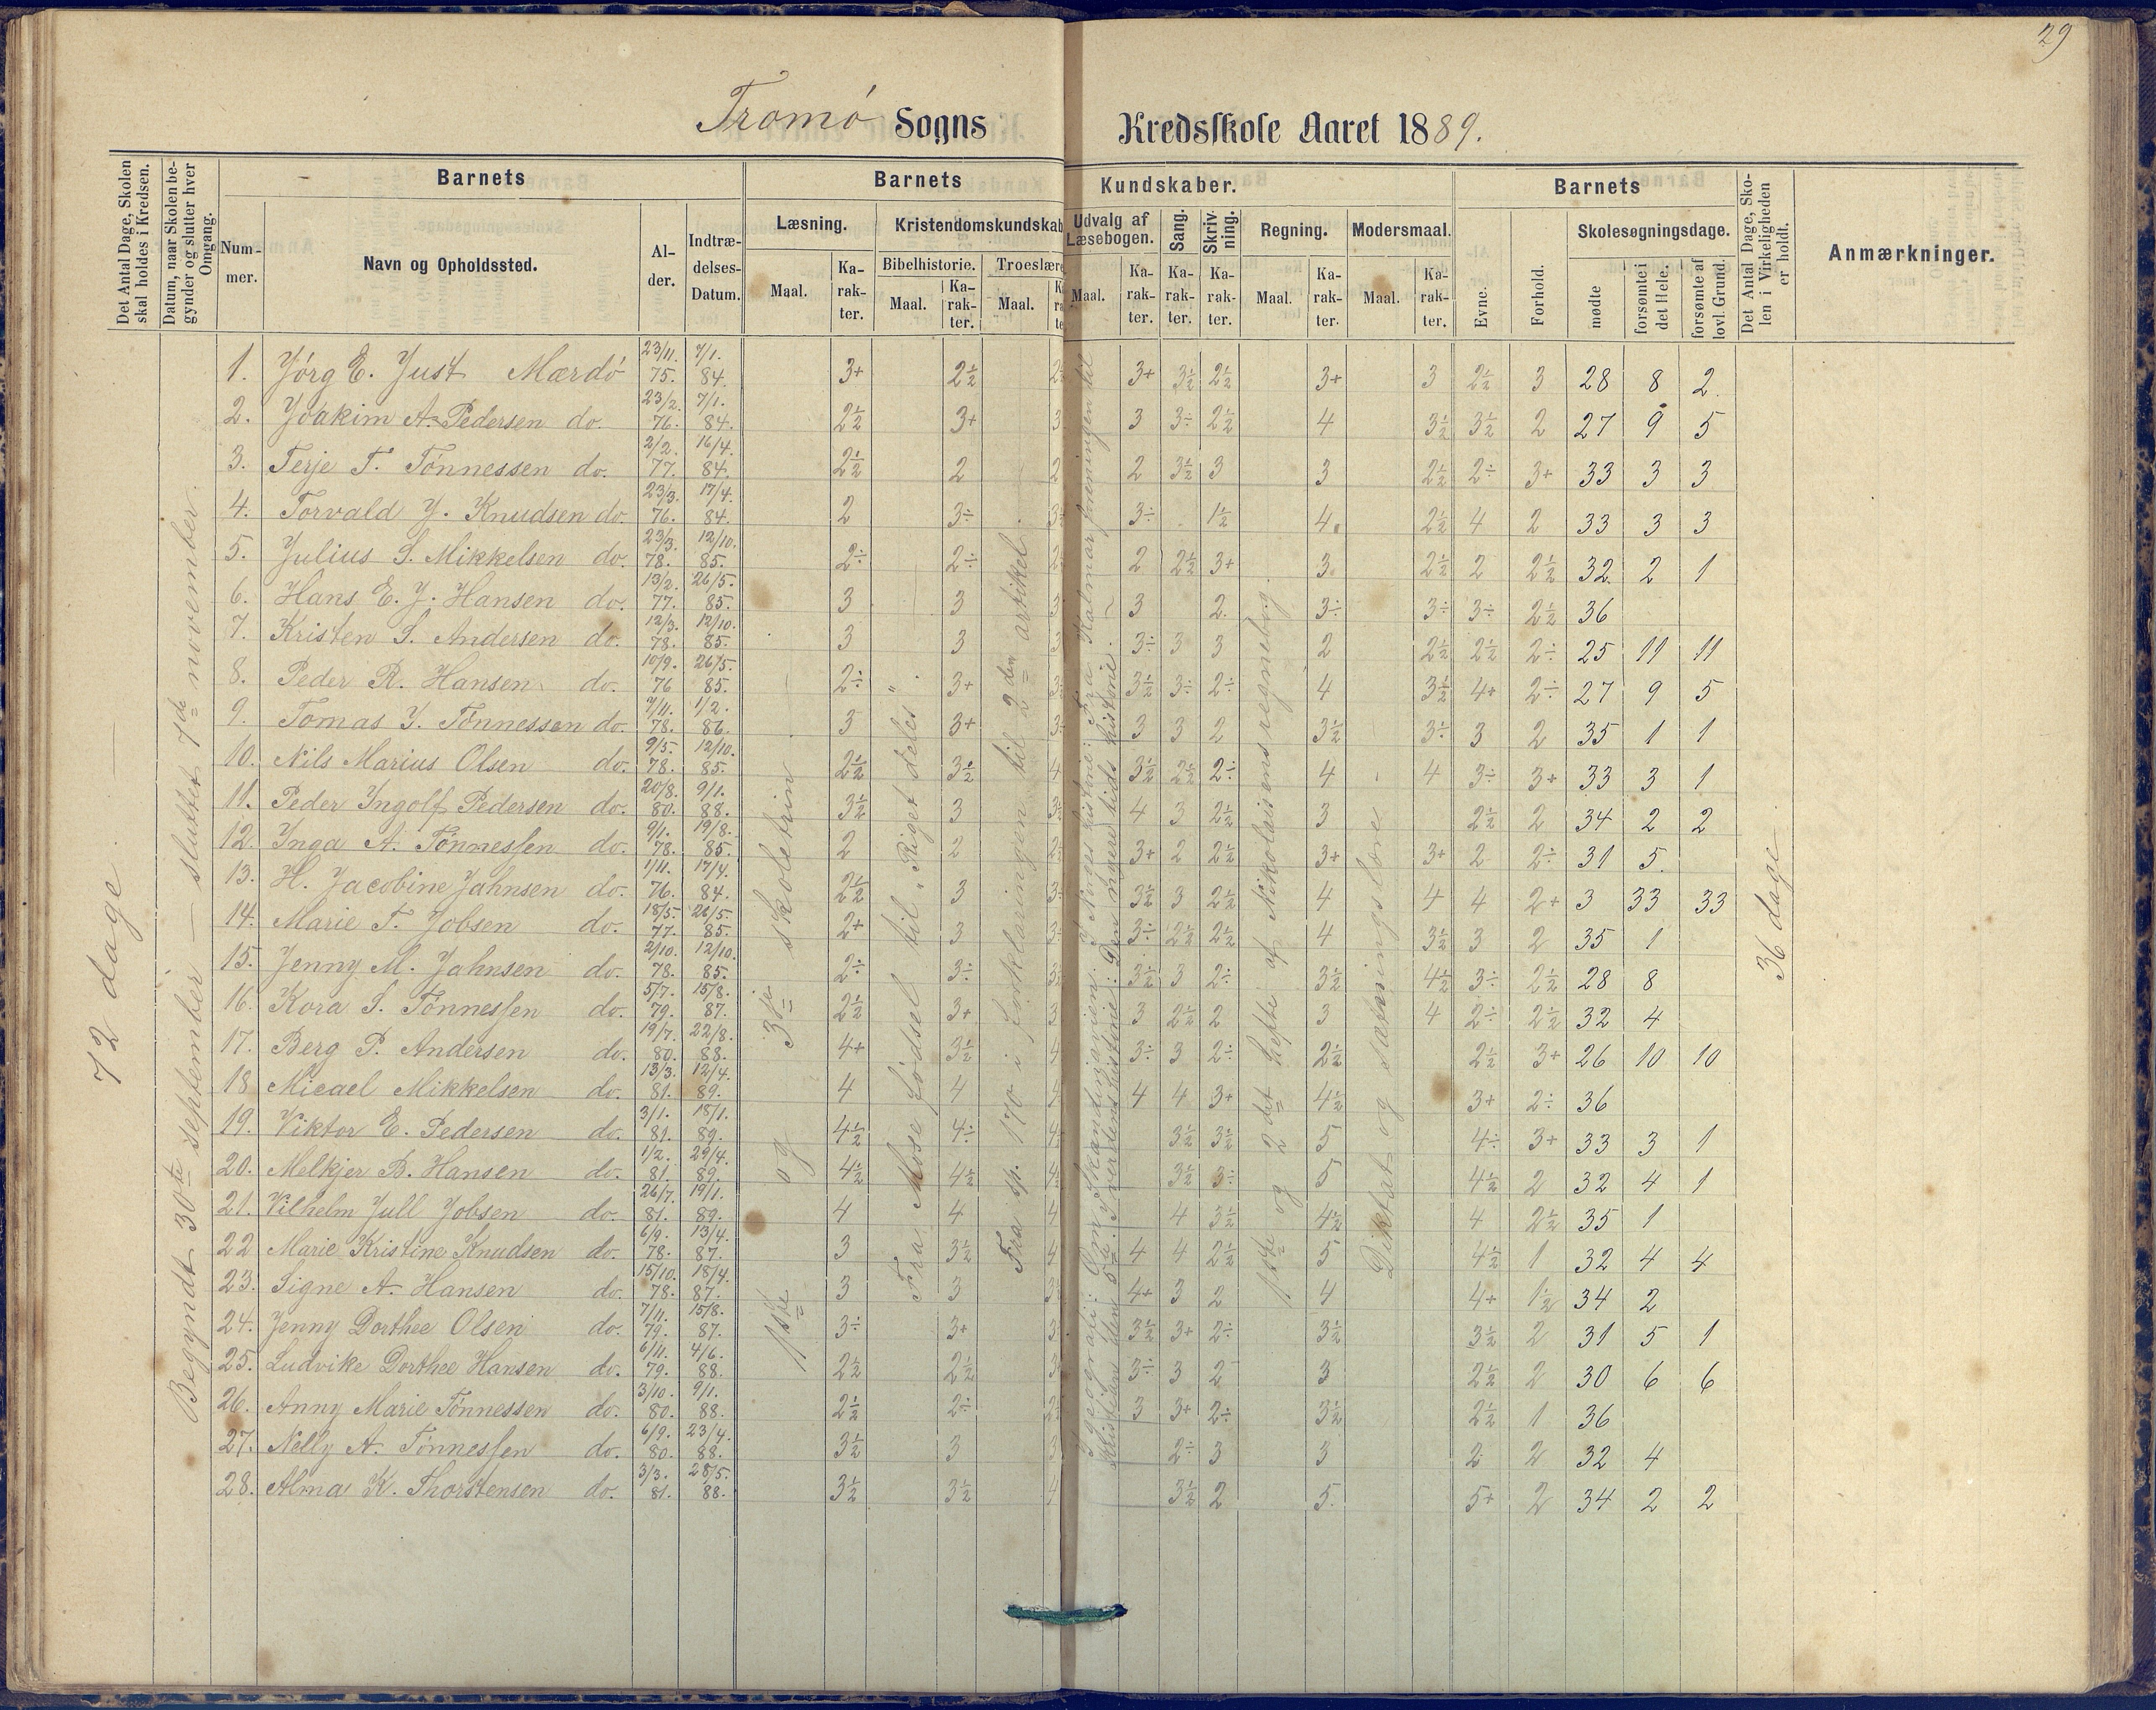 29
Tromø Sogns Kredsskole Aaret 1889.
Det Antal Dage, Skolen skal holdes i Kredsen.
Datum, naar Skolen begynder og slutter hver Omgang.
Barnets
Nummer.
Navn og Opholdssted.
Alder.
Indtrædelses-Datum.
Barnets Kundskaber.
Læsning.
Maal.
Karakter.
Kristendomskundskab
Bibelhistorie.
Maal.
Karakter.
Troeslære
Maal.
Udvalg af Læsebogen.
Maal.
Karakter.
Sang.
Karakter.
Skrivning.
Karakter.
Regning.
Maal.
Karakter.
Modersmaal.
Maal.
Karakter.
Barnets
Evne.
Forhold.
Skolesøgningsdage.
mødte
forsømte i det Hele.
forsømte af lovl. Grund.
Det Antal Dage, Skolen i Virkeligheden er holdt.
Anmærkninger.
72 dage
Begyndt 30te september – sluttet 7de november.
1ste og 3die skoletrin
Fra Mose fødsel til "Riget deles".
Fra sp. 170 i forklaringen til 2den artikel
1ste og 2det hefte af Nikolaisens regnebog.
Diktat og sætningslære
36 dage
1. Jørg E. Just Mærdø 23/11. 75. 7/1. 84. 3+ 2½ 3+ 3½ 2½ 3+ 3 2½ 3 28 8 2.
2. Joakim A. Pedersen do. 23/2. 76. 7/1. 84. 2½ 3+ 3 3 3÷ 2½ 4 3½ 3½ 2 27 9 5
3. Terje T. Tønnessen do. 2/2. 77. 16/4. 84. 2½ 2 2 2 3½ 3 3 2½ 2÷ 3+ 33 3 3
4. Torvald J. Knudsen do. 23/3. 76. 17/4. 84. 2 3÷ 3÷ 1½ 4. 2½ 4 2 33 3 3
5. Julius S. Mikkelsen do. 23/3. 78. 12/10. 85. 2÷ 2÷ 2 2½ 3+ 3. 2½ 2 2½ 32 2 1
6. Hans E. J. Hansen do. 13/2. 77. 26/5. 85. 3 3 3 3 2. 3÷ 3÷ 3÷ 2½ 36
7. Kristen S. Andersen do. 12/3. 78. 12/10. 85. 3 3 3 3÷ 3 3 2 2½ 2½ 2÷ 25 11 11
8. Peder R. Hansen do. 10/9. 76 26/5. 85. 2÷ 3+ 3½ 3÷ 2÷ 4 3½ 4+ 2÷ 27 9 5
9. Tomas J. Tønnessen do. 7/11. 78. 1/2. 86. 3 3+ 3 3 2 3½ 3÷ 3 2 35 1 1
10. Nils Marius Olsen do. 9/5. 78. 12/10. 85. 2½ 3½ 4 3½ 2½ 2÷ 4 4 3÷ 3+ 33 3 1
11. Peder Ingolf Pedersen do. 20/8. 80. 9/1. 88. 3½ 3 4 3 2½ 3 2½ 2 34 2 2
12. Inga A. Tønnessen do. 9/1. 78. 19/8. 85. 2 2 3+ 2 2½ 3+ 3+ 2 2÷ 31 5.
13. H. Jacobine Jahnsen do. 1/11. 76. 17/4. 84. 2½ 3 3½ 3 2½ 4 4 4 2+ 3 33 33
14. Marie T. Jobsen do. 18/5. 77. 26/5. 85. 2+ 3 3÷ 2½ 2½ 4 3½ 3 2 35 1
15. Jenny M. Jahnsen do. 2/10. 78. 12/10. 85. 2÷ 3÷ 3½ 3 2÷ 3½ 4½ 3÷ 2½ 28 8
16. Kora S. Tønnessen do. 5/7. 79. 15/8. 87. 2½ 3+ 3 3 2½ 2 3 4 2÷ 2½ 32 4
17. Berg P. Andersen do. 19/7. 80. 22/8. 88. 4+ 3½ 4 3÷ 3 2÷ 2½ 2½ 3+ 26 10 10
18 Micael Mikkelsen do. 13/3. 81. 12/4. 89. 4 4 4 4 4 3+ 4½ 3+ 2÷ 36
19. Viktor E. Pedersen do. 3/1. 81. 18/1. 89. 4½ 4÷ 3½ 3½ 5 4÷ 3+ 33 3 1
20. Melkjer B. Hansen do. 1/2. 81. 29/4. 89. 4½ 4½ 3½ 3÷ 5 4½ 2 32 4 1
21. Vilhelm Jull Jobsen do. 26/7. 81. 19/1. 89. 4 4 4 4 3½ 4½ 4 2½ 35 1
22 Marie Kristine Knudsen do. 6/9. 78. 13/4. 87. 3 3½ 4 4 4 2½ 5 4½ 1 32 4 4
23. Signe A. Hansen do. 15/10. 78. 18/4. 87. 3 3 4+ 3 2 4 4+ 1½ 34 2
24. Jenny Dorthee Olsen do. 7/11. 79. 15/8. 87. 3÷ 3+ 3½ 3+ 2÷ 3½ 3½ 2 31 5 1
25. Ludvike Dorthee Hansen do. 6/11. 79. 4/6. 88. 2½ 2½ 3÷ 3 2 3 2½ 2 30 6 6
26. Anny Marie Tønnessen do. 3/10. 80. 9/1. 88. 2½ 2÷ 3 3+ 2÷ 3½ 2½ 1 36
27. Nelly A. Tønnessen do. 6/9. 80. 23/4. 88. 3½ 3 2÷ 3 3 2 2 32 4
28. Alma K. Thorstensen do. 3/3. 81. 28/5. 88. 3½ 3½ 4 3½ 2 5. 5+ 2 34 2 2